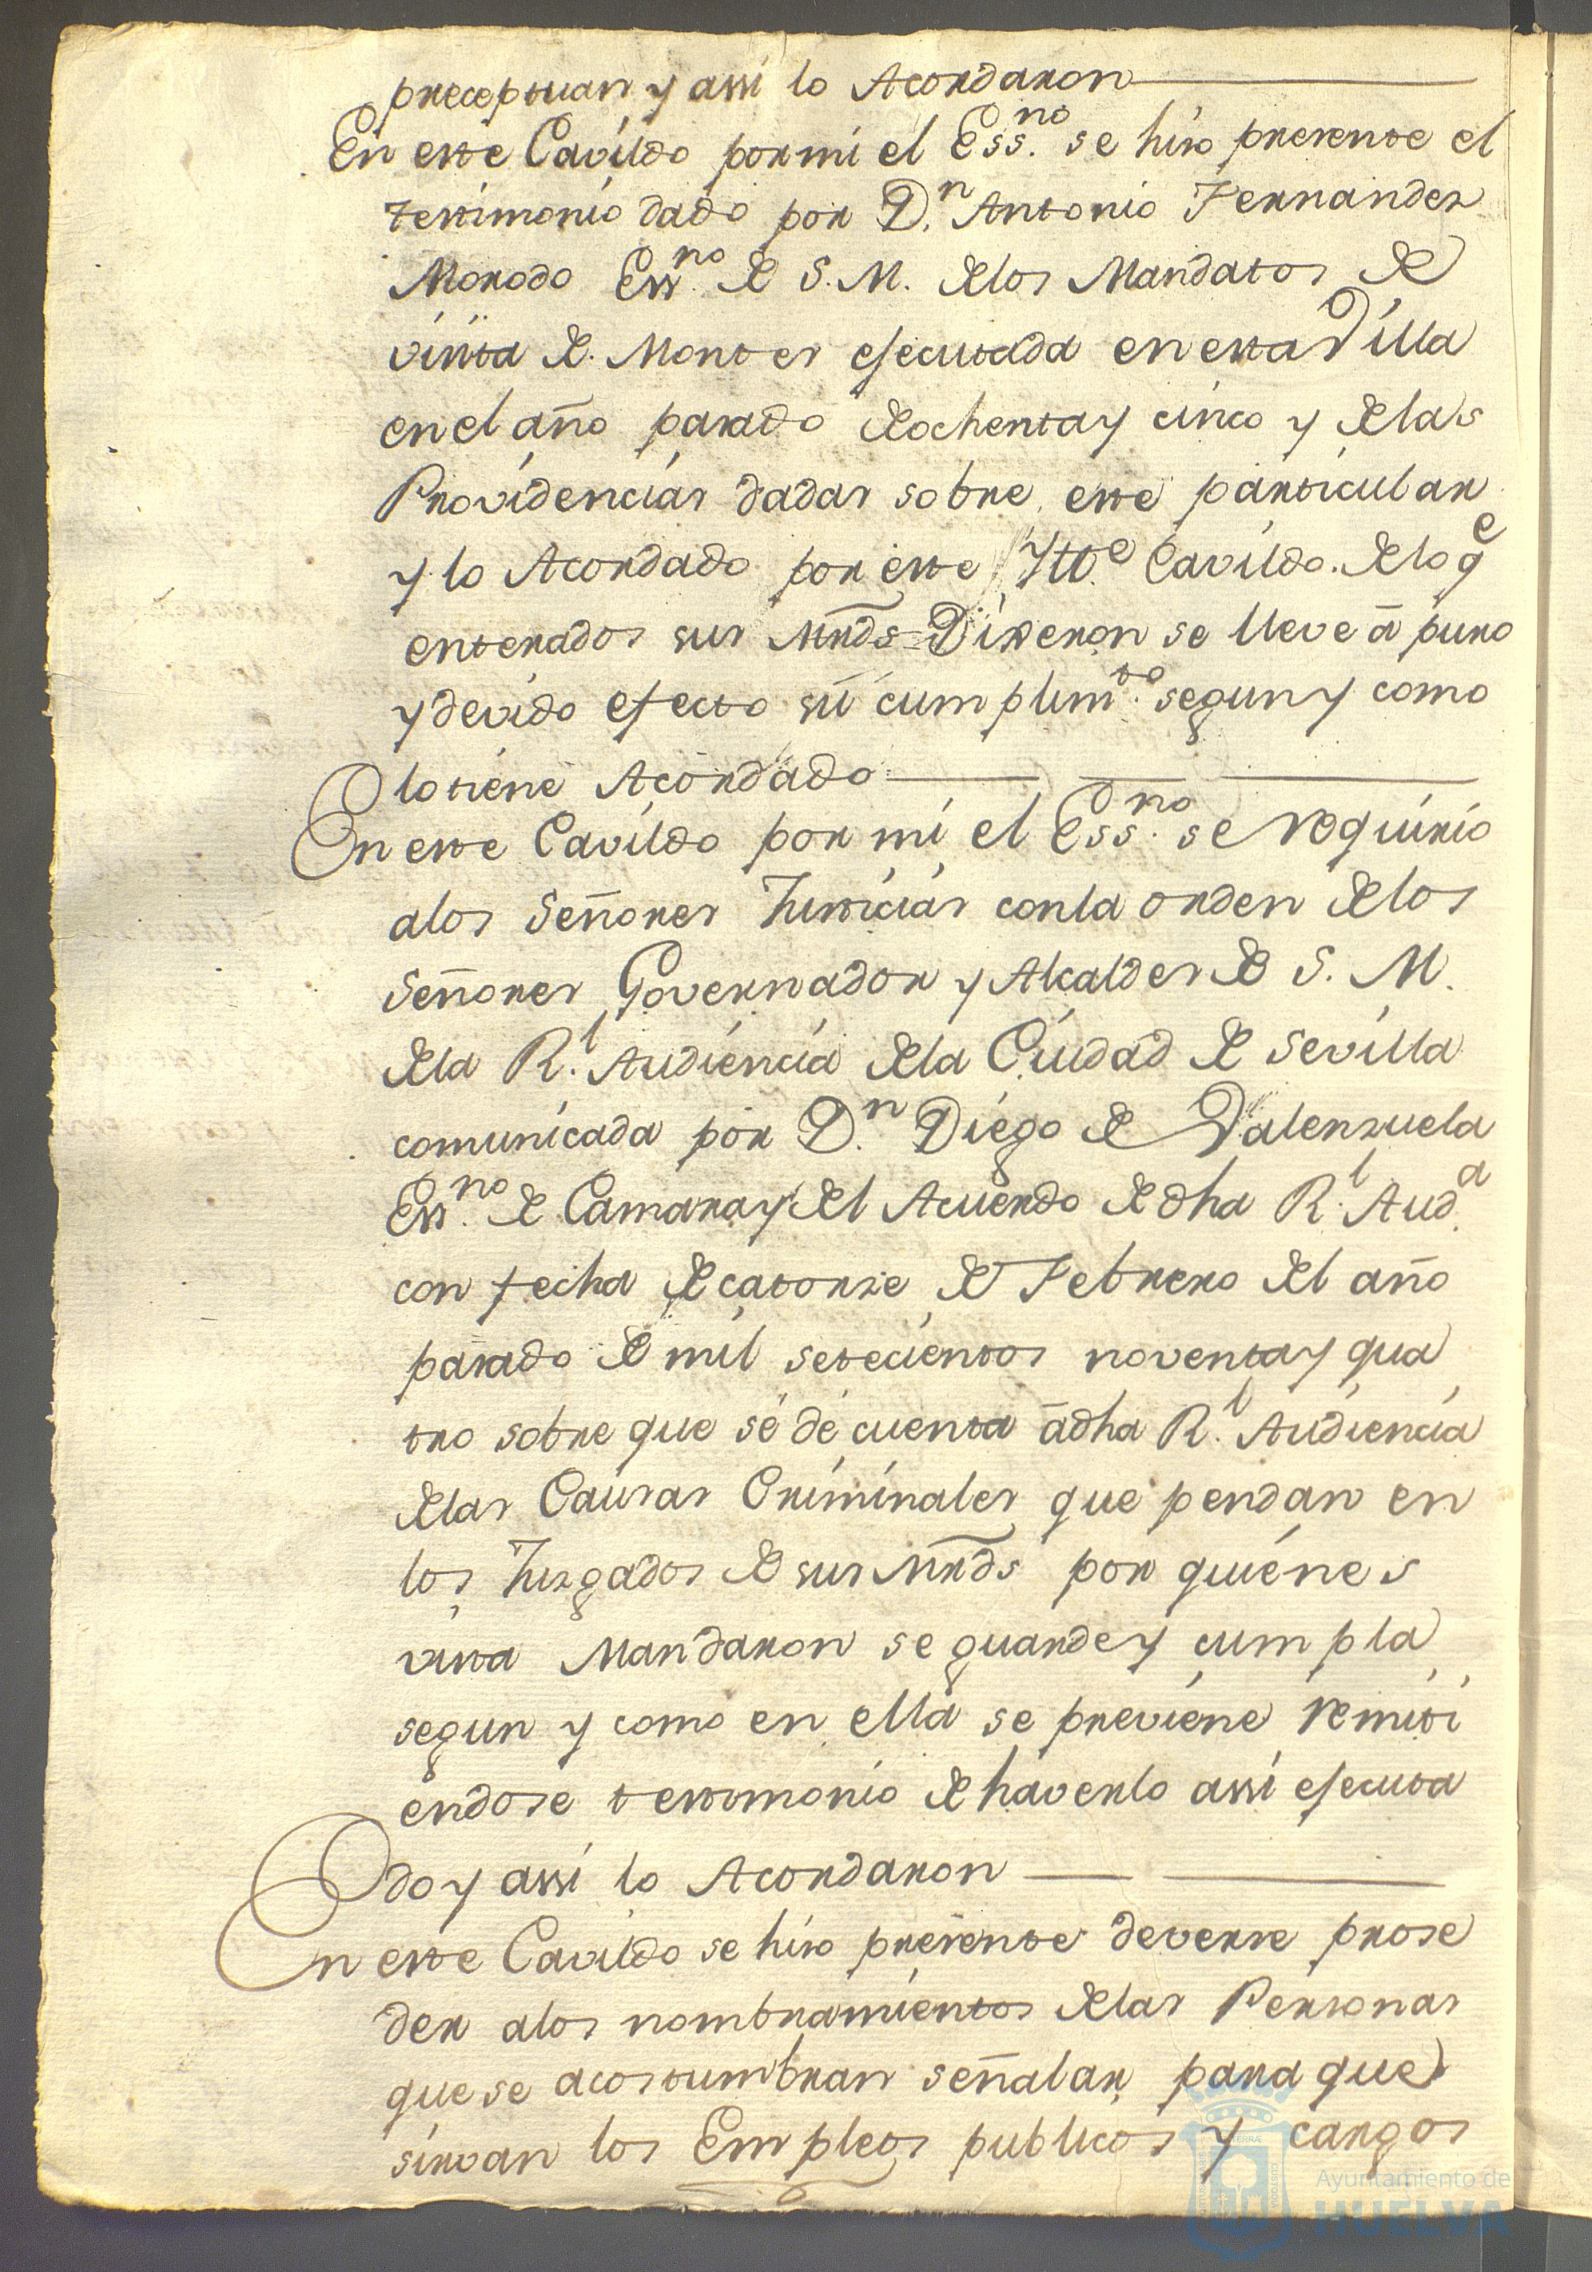 preceptuan y assi lo Acordaron
En este Cavildo por mi el Ess.no se hiso presente el
testimonio dado por D.n Antonio Fernandez
Morodo Ess.no de S. M. delos Mandatos de
vissta de Montes esecutada en esta Villa
en el año pasado deochenta y cinco y delas
Providencias dadas sobre este particular
y lo Acordado por este Ille. Cavildo. delo qe
enterados sus Mrds Dixeron se lleve â puro
y devido efecto su cumplimto. segun y como
lo tiene Acordado
En este Cavildo por mi el Ess.no se requirio
alos Señores Justicias conla orden delos
Señores Governador y Alcaldes de S. M.
dela R.l Audiencia dela Ciudad de Sevilla
comunicada por D.n Diego de Valenzuela
Ess.no de Camara y del Acuerdo de dha R.l Aud.a
con fecha de catorze de Febrero del año
pasado de mil setecientos noventa y qua
tro sobre que se dé cuenta âdha R.l Audiencia
delas Causas Criminales que pendan en
los Juzgados de sus Mrds por quienes
vista Mandaron se guarde y cumpla
segun y como en ella se previene remiti
endose testimonio de haverlo assi esecuta
do y assi lo Acordaron
En este Cavildo se hiso presente deverse prose
der alos nombramientos delas Personas
que se acostumbran señalar para que
sirvan los Empleos publicos y cargos
Ayuntamiento de
HUELVA